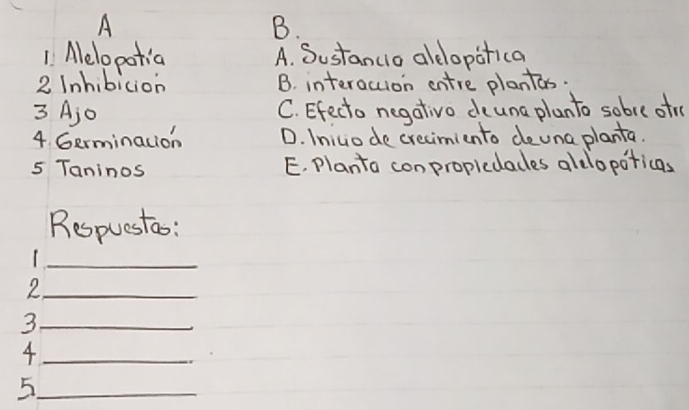 A
B.
1. Alelopatía
A. Sustancia alelopática
2 Inhibición
B. interacción entre plantas.
3 Ajo
C. Efecto negativo de una planta sobre otra
4. Germinación
D. Inicio de crecimiento de una planta.
5 Taninos
E. Planta con propiedades alelopáticas
Respuestas:
1
2
3
4
5